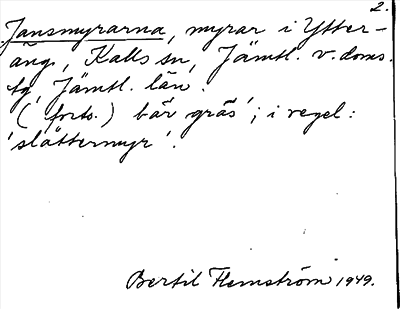 2.
Jansmyrarna, myrar i Ytter-
äng, Kalls sn, Jämtl. v. doms.
fg, Jämtl. län.
( forts. ) bär gräs'; i regel:
'slåttermyr'.
Bertil Flemström 1949.